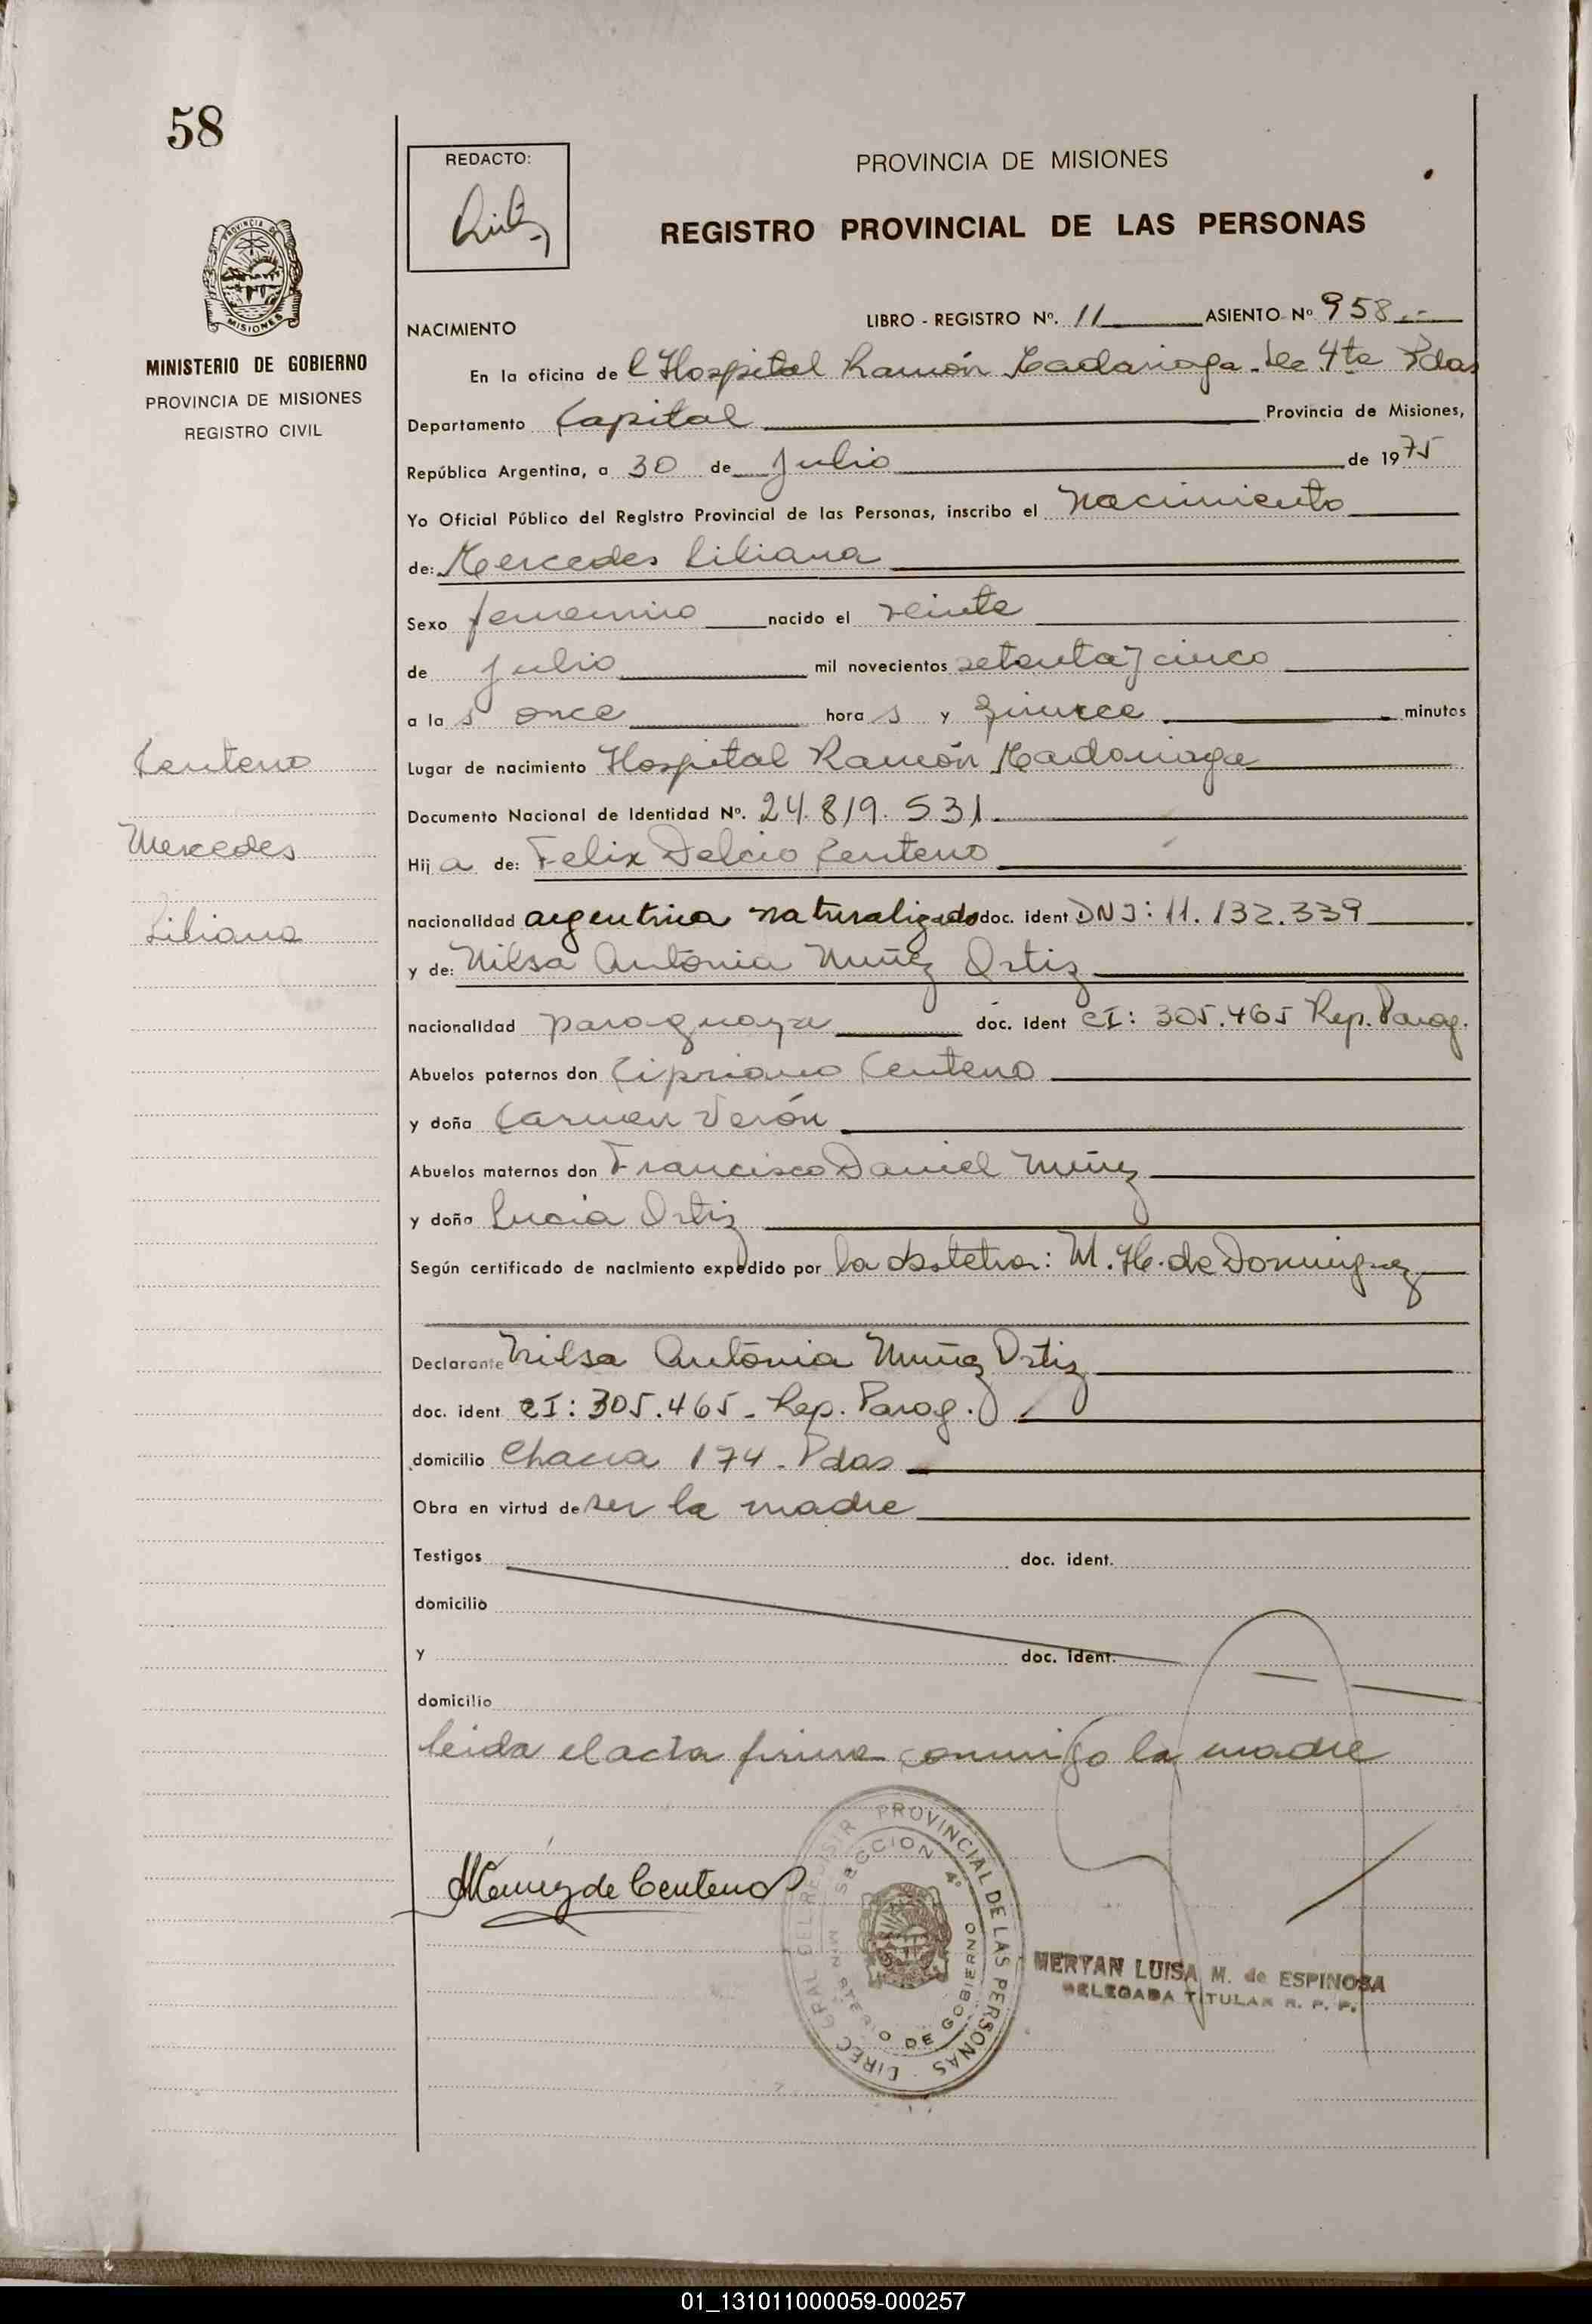 58
REDACTO:
PROVINCIA DE MISIONES
REGISTRO PROVINCIAL DE LAS PERSONAS
PROVINCIA DE
MISIONES
MINISTERIO DE GOBIERNO
PROVINCIA DE MISIONES
REGISTRO CIVIL
NACIMIENTO
LIBRO - REGISTRO Nº. 11 ASIENTO Nº 958.-
En la oficina de l Hospital Ramón Madariaga - Sec 4ta Pdas
Departamento Capital Provincia de Misiones,
República Argentina, a 30 de Julio de 1975
Yo Oficial Público del Registro Provincial de las Personas, inscribo el nacimiento
de: Mercedes Liliana
Sexo femenino nacido el veinte
de Julio mil novecientos setenta y cinco
a la s once hora s y quince minutos
Centeno
Lugar de nacimiento Hospital Ramón Madariaga
Documento Nacional de Identidad Nº. 24.819.531
Mercedes
Hij a de: Felix Delcio Centeno
Liliana
nacionalidad argentina naturalizado doc. ident DNI: 11.132.339
y de: Nilsa Antonia Muñoz Ortiz
nacionalidad paraguaya doc. Ident CI: 305.465 Rep. Parag.
Abuelos paternos don Cipriano Centeno
y doña Carmen Verón
Abuelos maternos don Francisco Daniel
y doña Lucia Ortiz
Según certificado de nacimiento expedido por la obstetra: M. H. de Dominguez
Declarante Nilsa Antonia Muñoz Ortiz
doc. ident CI: 305.465 - Rep. Parag.
domicilio Chacra 174 - Pdas
Obra en virtud de ser la madre
Testigos doc. ident.
domicilio
y doc. ident.
domicilio
leida el acta firma conmigo la madre
de Centeno
PROVINCIAL DE LAS PERSONAS
SECCION 4º
DE GOBIERNO
MERYAN LUISA M. de ESPINOSA
DELEGADA TITULAR R. P. P.
01_131011000059-000257